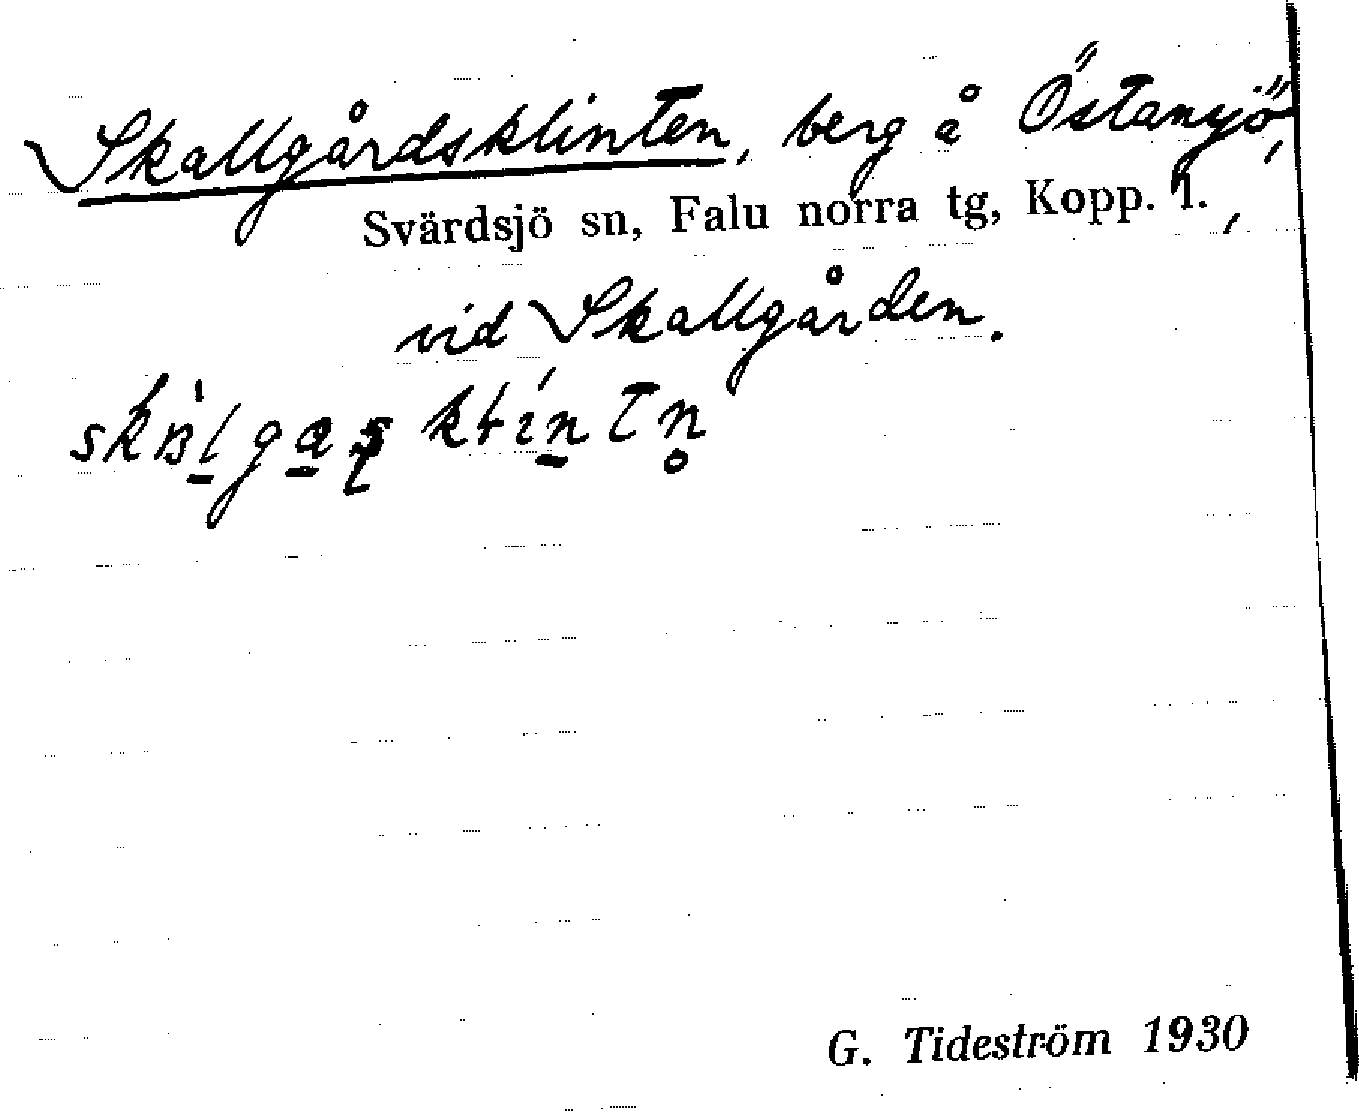 Skallgårdsklinten, berg å Östansjö,
Svärdsjö sn, Falu norra tg, Kopp. l.,
vid Skallgården.
G. Tideström 1930